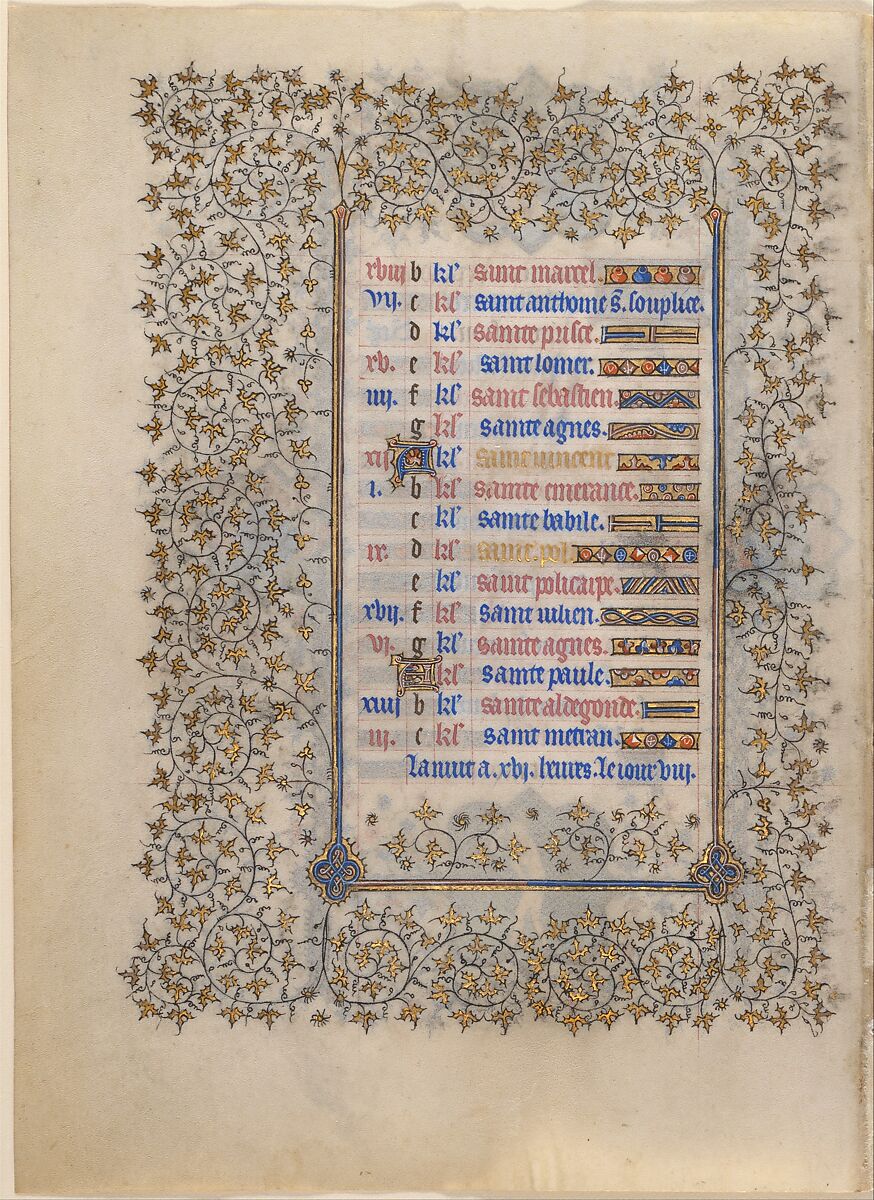 xviij b kl' saint marcel.
vij. c kl' saint anthoine s. souplice.
d kl' sainte prisce.
xv. e kl' saint lomer.
iiij. f kl' saint sebastien.
g kl' sainte agnes.
xij A kl' saint vincent
i. b kl' sainte emerance.
c kl' sainte babile.
ix. d kl' saint pol.
e kl' saint policarpe.
xvij. f kl' saint iulien.
vj. g kl' sainte agnes.
A kl' sainte paule.
xiiij b kl' sainte aldegonde.
iij. c kl' saint metran.
La nuit a .xvj. heures. le iour viij.